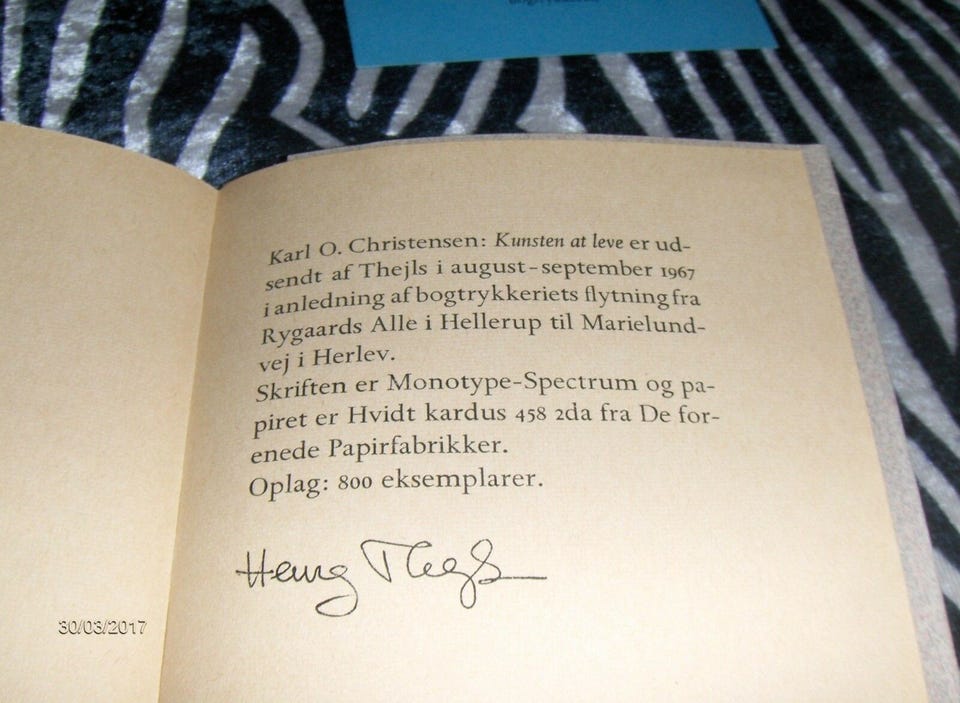 Karl O. Christensen: Kunsten at leve er ud-
sendt af Thejls i august-september 1967
i anledning af bogtrykkeriets flytning fra
Rygaards Alle i Hellerup til Marielund-
vej i Herlev.
Skriften er Monotype-Spectrum og pa-
piret er Hvidt kardus 458 2da fra De for-
enede Papirfabrikker.
Oplag: 800 eksemplarer.
Henry Thejls
30/03/2017